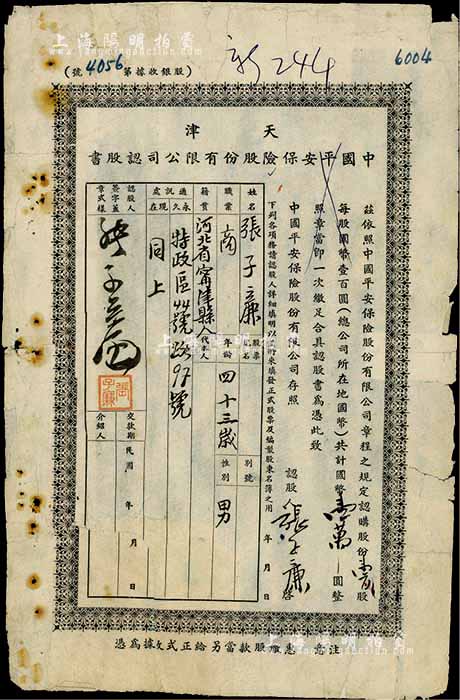 上海陽明拍賣
新244
6004
(股銀收據第4056號)
天津
中國平安保險股份有限公司認股書
茲依照中國平安保險股份有限公司章程之規定認購股份壹百股
每股國幣壹百圓(總公司所在地國幣)共計國幣壹萬——圓整
照章當即一次繳足合具認股書為憑此致
中國平安保險股份有限公司存照
認股人張子廉啓
年 月 日
下列各項務請認股人詳細填明以便將來填發正式股票及編製股東名簿之用
姓名 張子廉
股票戶名
別號
職業 商
年齡 四十三歲
性別 男
籍貫 河北省甯津縣人
代表人
通訊處
永久 特政區44號路97號
現在 同上
認股人簽字蓋章式樣
張子廉
張子廉
交款期 民國 年 月 日
介紹人
注意 惠繳股款當另給正式收據為憑
上海陽明拍賣